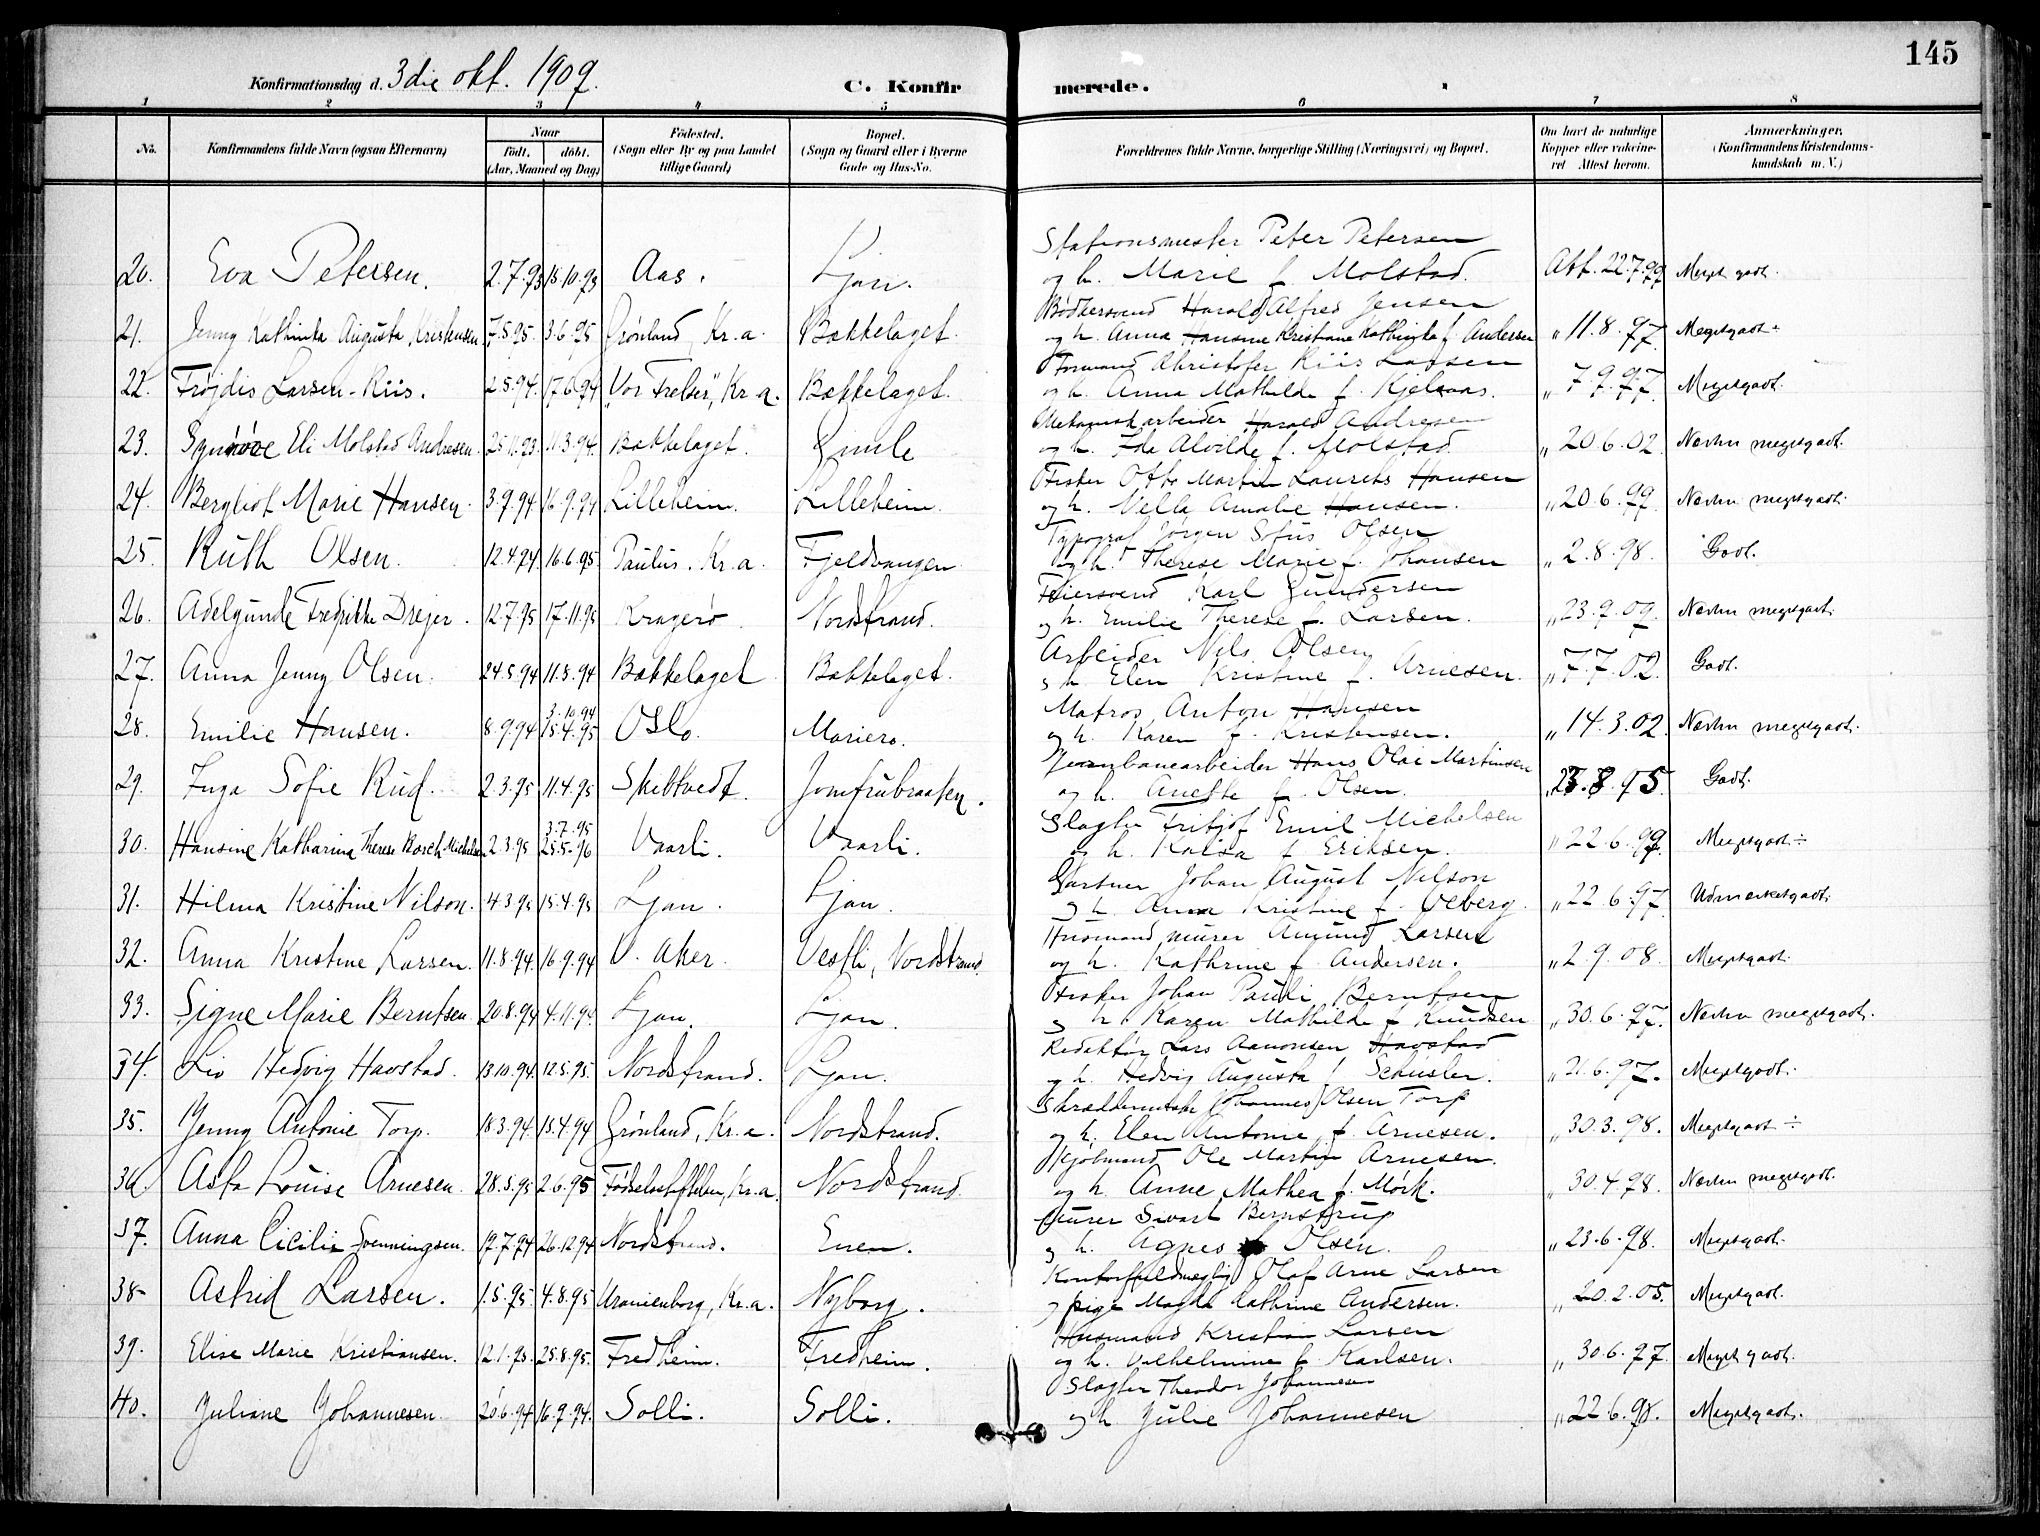 145
Konfirmationsdag d. 3die okt. 1909.
C. Konfirmerede.
1 2 3 4 5 6 7 8
No. Konfirmandens fulde Navn (ogsaa Efternavn) Naar født, døbt. (Aar, Maaned og Dag) Fødested. (Sogn eller By og paa Landet tillige Gaard) Bopæl. (Sogn og Gaard eller i Byerne Gade og Hus-No. Forældrenes fulde Navne, borgerlige Stilling (Næringsvei) og Bopæl. Om havt de naturlige Kopper eller vakcineret Attest herom. Anmærkninger. (Konfirmandens Kristendomskundskab m. V.)
Stationsmester Peter Petersen
20. Eva Petersen. 2.7.93 15.10.93 Aas. Ljan. og h. Marie f. Molstad. Att. 22.7.99 Meget godt.
Bødkersvend Harald Alfred Jensen
21. Jenny Kathinka Augusta Kristensen 7.5.95. 3.6.95 Grønland, Kr.a. Bækkelaget. og h. Anna Hansine Kristiane Kathinka f. Andersen „ 11.8.97. Megetgodt÷
Formand Christofer Riis Larsen
22. Frøjdis Larsen-Riis. 2.5.94. 17.6.94 „Vor Frelser", Kr.a. Bækkelaget. og h. Anna Mathilde f. Kjelsaas. „ 7.9.97. Megetgodt.
Mekaniskarbeider Harald Andresen
23. Synnøve Eli Molstad Andresen. 25.11.93. 11.3.94. Bækkelaget. Gimle og h. Ida Alvilde f. Molstad. „ 20.6.02. Næsten megetgodt.
Fisker Otto Martin Laurits Hansen
24. Bergliot Marie Hansen. 3.9.94 16.9.94 Lilleheim. Lilleheim. og h. Vella Amalie Hansen. „ 20.6.99. Næsten megetgodt.
Typograf Jørgen Sofus Olsen
25. Ruth Olsen. 12.4.94 16.6.95 Paulus. Kr.a. Fjeldvangen og h. Therese Marie f. Johansen „ 2.8.98. Godt.
Feiersvend Karl Gundersen
26. Adelgunde Fredrikke Drejer. 12.7.95 17.11.95 Kragerø Nordstrand. og h. Emilie Therese f. Larsen. „ 23.9.09. Næsten megetgodt.
Arbeider Nils Olsen
27. Anna Jenny Olsen. 24.5.94 11.8.94 Bækkelaget Bækkelaget. og h. Elen Kristine f. Arnesen. „ 7.7.02. Godt.
Matros Anton Hansen
28. Emilie Hansen. 8.9.94 3.10.94 15.4.95 Oslo. Mariero. og h. Karen f. Kristensen. „ 14.3.02. Næsten megetgodt.
Jernbanearbeider Hans Olai Martinsen
29. Inga Sofie Rud. 2.3.95 11.4.95 Skibtvedt. Jomfrubraaten. og h. Anette f. Olsen. Godt.
Slagter Fritjof Emil Michelsen
30. Hansine Katharina Therese Borch Michelsen 2.3.95 3.7.95 25.5.96 Vaarli. Vaarli. og h. Kaisa f. Eriksen. „ 22.6.99. Megetgodt÷
Gartner Johan August Nilson
31. Hilma Kristine Nilson. 4.3.95 15.4.95 Ljan. Ljan. og h. Anna Kristine f. Veberg. „ 22.6.97. Udmerketgodt.
Husmand, murer Amund Larsen
32. Anna Kristine Larsen. 11.8.94. 16.9.94 V. Aker. Vestli, Nordstrand. og h. Kathrine f. Andersen. „ 2.9.08. Megetgodt.
Fisker Johan Pauli Berntsen
33. Signe Marie Berntsen. 20.8.94 4.11.94. Ljan. Ljan. og h. Karen Mathilde f. Knudsen „ 30.6.97. Næsten megetgodt.
Redaktør Lars Aanonsen Havstad
34. Liv Hedvig Havstad. 13.10.94. 12.5.95. Nordstrand. Ljan. og h. Hedvig Augusta f. Schusler. „ 21.6.97. Megetgodt.
Skræddermester Johannes Olsen Torp
35. Jenny Antonie Torp. 18.3.94. 15.4.94 Grønland, Kr.a. Nordstrand. og h. Elen Antonie f. Arnesen. „ 30.3.98. Megetgodt÷
Kjøbmand Ole Martin Arnesen.
36. Asta Louise Arnesen. 28.3.95 2.6.95 Fødselsstiftelsen, Kr.a. Nordstrand. og h. Anne Mathea f. Mørk. „ 30.4.98. Næsten megetgodt.
Murer Sivart Bernstrup
37. Anna Cicilie Svenningsen. 19.7.94 26.12.94 Nordstrand. Enen. og h. Agnes f. Olsen. „ 23.6.98. Megetgodt.
Kontorfuldmægtig Olaf Arne Larsen
38. Astrid Larsen. 1.5.95. 4.8.95 Uranienborg, Kr.a. Nyborg. og pige Magda Kathrine Andersen. „ 20.2.05. Megetgodt.
Husmand Kristian Larsen
39. Elise Marie Kristiansen. 12.1.95. 25.8.95. Fredheim. Fredheim. og h. Vilhelmine f. Karlsen. „ 30.6.97. Meget godt.
Slagter Theodor Johannesen
40. Juliane Johannesen. 20.6.94 16.9.94. Solli. Solli. og h. Julie Johannesen „ 22.6.98. Megetgodt.